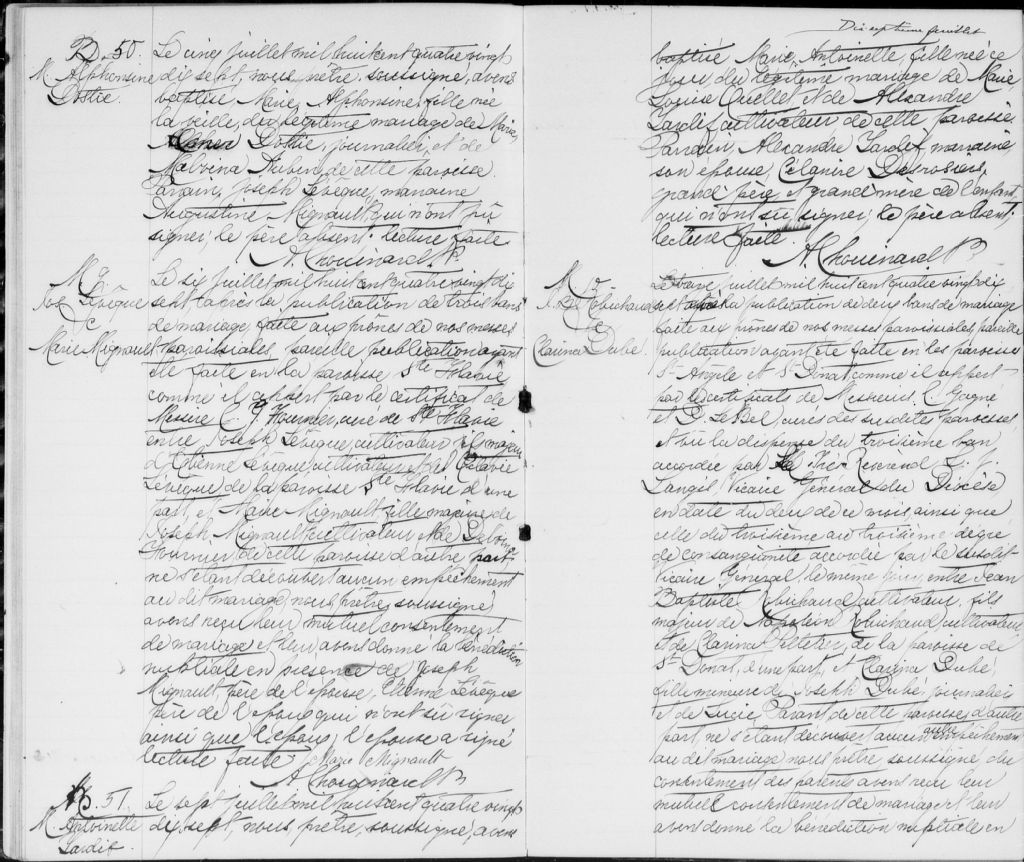 B. 50.
M. Alphonsine
Dostie.
Le cinq juillet mil huit cent quatre vingt
dix sept, nous prêtre soussigné, avons
baptisé, Marie, Alphonsine, fille née
la veille, du légitime mariage de Marie,
Dostie, journalier, et de
Malvina Aubin de cette paroisse.
Parrain, Joseph Levêque, marraine
Augustine Mignault, qui n'ont pu
signer, le père absent. lecture faite
A. Chouinard P.
M. 9.
Jos. Levêque
&
Marie Mignault
Le six juillet mil huit cent quatre vingt dix
sept après la publication de trois bans
de mariage, faite aux prônes de nos messes
paroissiales, pareille publication ayant
été faite en la paroisse Ste Flavie
comme il appert par le certificat de
Messire C. Fournier, curé de Ste Flavie
entre Joseph Levêque, cultivateur fils majeur
d'Etienne Levêque, cultivateur et de
Levêque de la paroisse Ste Flavie d'une
part, et Marie Mignault fille majeure de
Joseph Mignault cultivateur et de
Fournier de cette paroisse d'autre part;
ne s'étant découvert aucun empêchement
au dit mariage, nous, prêtre, soussigné
avons reçu leur mutuel consentement
de mariage et leur avons donné la bénédiction
nuptiale en présence de Joseph
Mignault, père de l'épouse, Etienne Levêque
père de l'époux qui n'ont su signer
ainsi que l'époux, l'épouse a signé
lecture faite. Marie Mignault
A. Chouinard P.
B. 51.
M. Antoinette
Tardif.
Le sept juillet mil huit cent quatre vingt
dix sept, nous, prêtre, soussigné, avons
Dix septième feuillet
baptisé Marie, Antoinette, fille née ce
jour, du légitime mariage de Marie,
Louise Ouellet et de Alexandre
Tardif cultivateur de cette paroisse
Parrain, Alexandre Tardif, marraine,
son épouse, Célanire Desrosiers,
grand père et grand mère de l'enfant
qui n'ont su signer, le père absent;
lecture faite.
A. Chouinard P.
M. 10
J. Bte Robichaud
&
Clarina Dubé.
Le treize juillet mil huit cent quatre vingt dix
sept après la publication de deux bans de mariage
faite aux prônes de nos messes paroissiales, pareille
publication ayant été faite en les paroisses
St Angèle et St Donat comme il appert
par les certificats de Messieurs C. Gagné
et D. LeBel, curés des susdites paroisses,
et vu la dispense du troisième ban
accordée par le Très Révérend
Langis, Vicaire Général du Diocèse,
en date du deux de ce mois ainsi que
celle du troisième au troisième degré
de consanguinité accordée par le susdit
Vicaire Général, le même jour, entre Jean
Baptiste Robichaud cultivateur, fils
majeur de Napoléon Robichaud, cultivateur
et de Clarina Pelletier, de la paroisse de
St Donat, d'une part, et Clarina Dubé,
fille mineure de Joseph Dubé journalier
et de Lucie Parant de cette paroisse d'autre
part, ne s'étant découvert aucun autre empêchement
au dit mariage nous prêtre soussigné, du
consentement des parents avons reçu leur
mutuel consentement de mariage et leur
avons donné la bénédiction nuptiale en